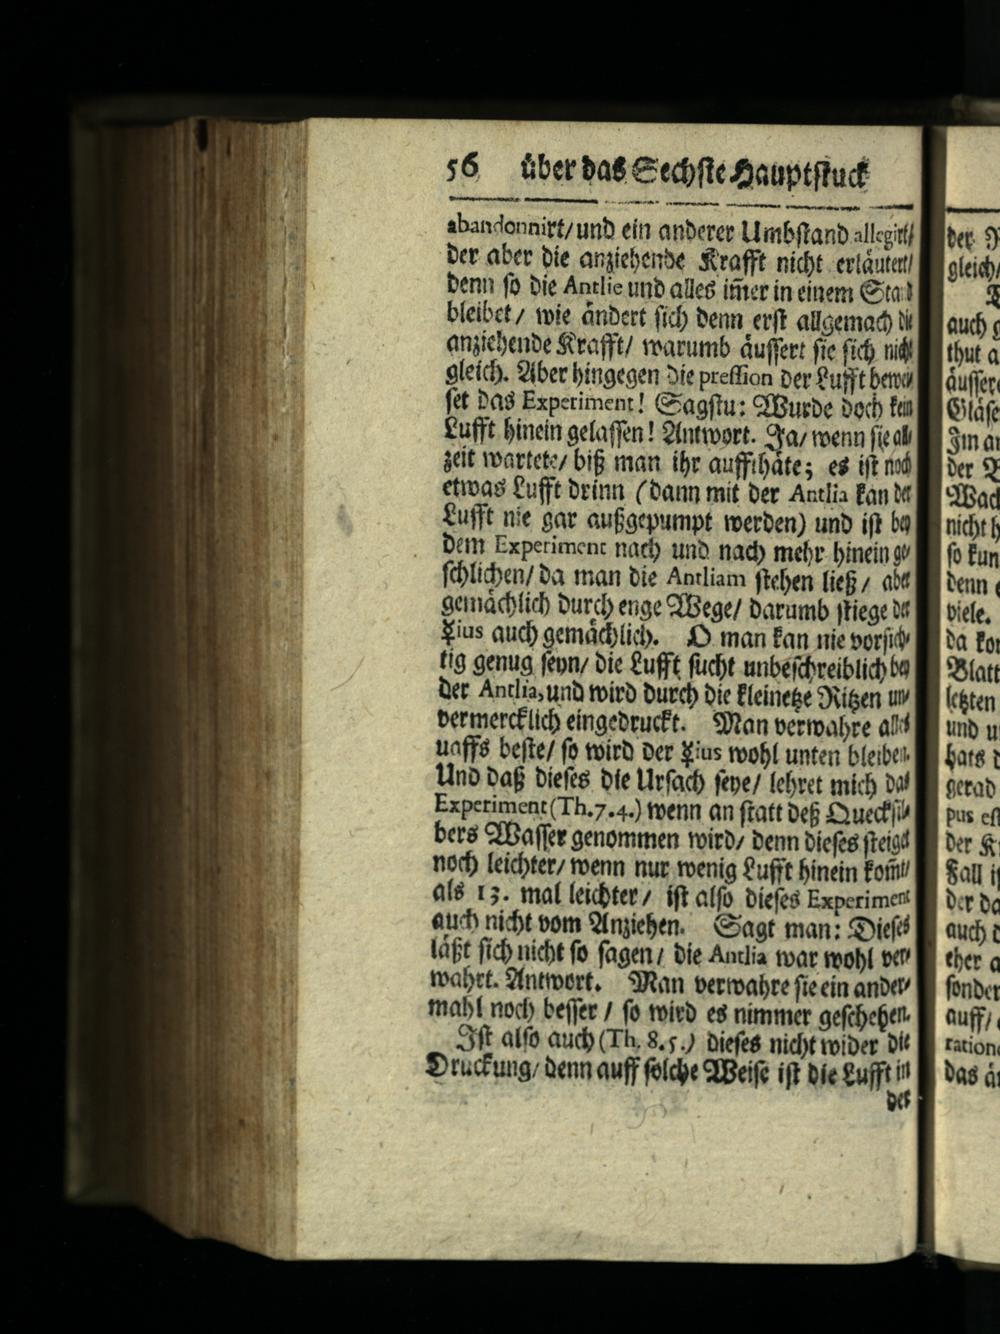 56 über das Sechste Hauptstuck
abandonnirt/ und ein anderer Umbstand allegirt/
der aber die anziehende Krafft nicht erläutert/
denn so die Antlie und alles im̃er in einem Stand
bleibet/ wie ändert sich denn erst allgemach die
anziehende Krafft/ warumb äussert sie sich nicht
gleich. Aber hingegen die pression der Lufft bewei-
set das Experiment! Sagstu: Wurde doch kein
Lufft hinein gelassen! Antwort. Ja/ wenn sie all-
zeit wartete/ biß man ihr auffthäte; es ist noch
etwas Lufft drinn (dann mit der Antlia kan der
Lufft nie gar außgepumpt werden) und ist bey
dem Experiment nach und nach mehr hinein ge-
schlichen/ da man die Antliam stehen ließ/ aber
gemächlich durch enge Wege/ darumb stiege der
☿ius auch gemächlich. O man kan nie vorsich-
tig genug seyn/ die Lufft sucht unbeschreiblich bey
der Antlia, und wird durch die kleinetze Ritzen un-
vermercklich eingedruckt. Man verwahre alles
uaffs beste/ so wird der ☿ius wohl unten bleiben.
Und daß dieses die Ursach seye/ lehret mich das
Experiment (Th. 7. 4.) wenn an statt deß Quecksil-
bers Wasser genommen wird/ denn dieses steiget
noch leichter/ wenn nur wenig Lufft hinein kom̃t/
als 13. mal leichter/ ist also dieses Experiment
auch nicht vom Anziehen. Sagt man: Dieses
läßt sich nicht so sagen/ die Antlia war wohl ver-
wahrt. Antwort. Man verwahre sie ein ander-
mahl noch besser/ so wird es nimmer geschehen.
Ist also auch (Th. 8. 5.) dieses nicht wider die
Druckung/ denn auff solche Weise ist die Lufft in
der
der
gleich/
auch
thut
Gläse
der
nicht
so kun
denn
viele.
da
Blatt
letzten
und
hats
gerad
pus
der
Fall
der
auch
auff/
das